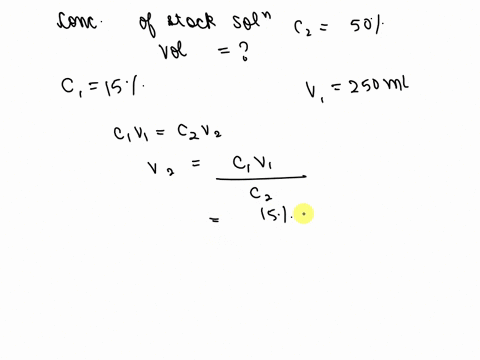 Conc. of stock solⁿ C₂ = 50%
Vol = ?
C₁ = 15%. V₁ = 250 ml
C₁V₁ = C₂V₂
V₂ = C₁V₁
C₂
= 15%.